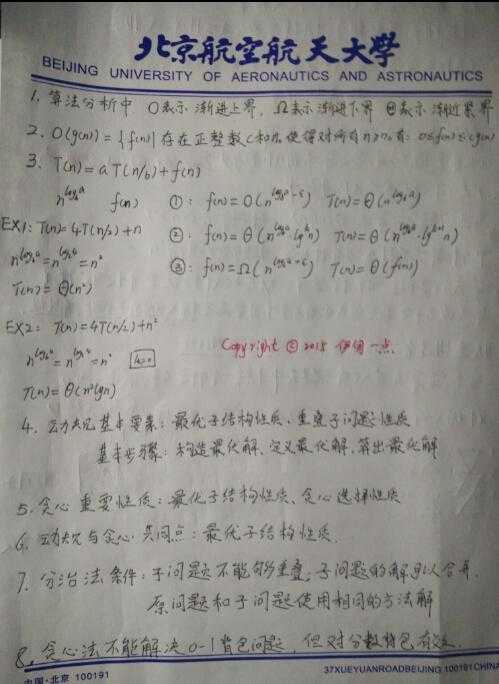 北京航空航天大學
BEIJING UNIVERSITY OF AERONAUTICS AND ASTRONAUTICS
1. 算法分析中 O表示渐进上界, Ω表示渐进下界 Θ表示渐近紧界
2. O(g(n)) = {f(n)| 存在正整数c和n₀使得对所有n≥n₀有: 0≤f(n)≤cg(n)
3. T(n) = aT(n/b) + f(n)
n^{log_b a} f(n) ①: f(n)=O(n^{log_b a-ε}) T(n)=Θ(n^{log_b a})
EX1: T(n)=4T(n/2)+n ②. f(n)=Θ(n^{log_b a}·lg^k n) T(n)=Θ(n^{log_b a}·lg^{k+1} n)
n^{log_b a}=n^{log_2 4}=n² ③: f(n)=Ω(n^{log_b a+ε}) T(n)=Θ(f(n))
T(n)=Θ(n²)
EX2: T(n)=4T(n/2)+n²
Copyright © 2015 伊阳一点
n^{log_b a}=n^{log_2 4}=n² k=0
T(n)=Θ(n²lgn)
4. 动规基本要素: 最优子结构性质、重叠子问题性质
基本步骤: 构造最优解、定义最优解、算出最优解
5. 贪心重要性质: 最优子结构性质、贪心选择性质
6. 动规与贪心共同点: 最优子结构性质.
7. 分治法条件: 子问题不能够重叠; 子问题的解可以合并.
原问题和子问题使用相同的方法解
8. 贪心法不能解决0-1背包问题, 但对分数背包有效.
中国·北京 100191 37XUEYUANROADBEIJING 100191CHINA